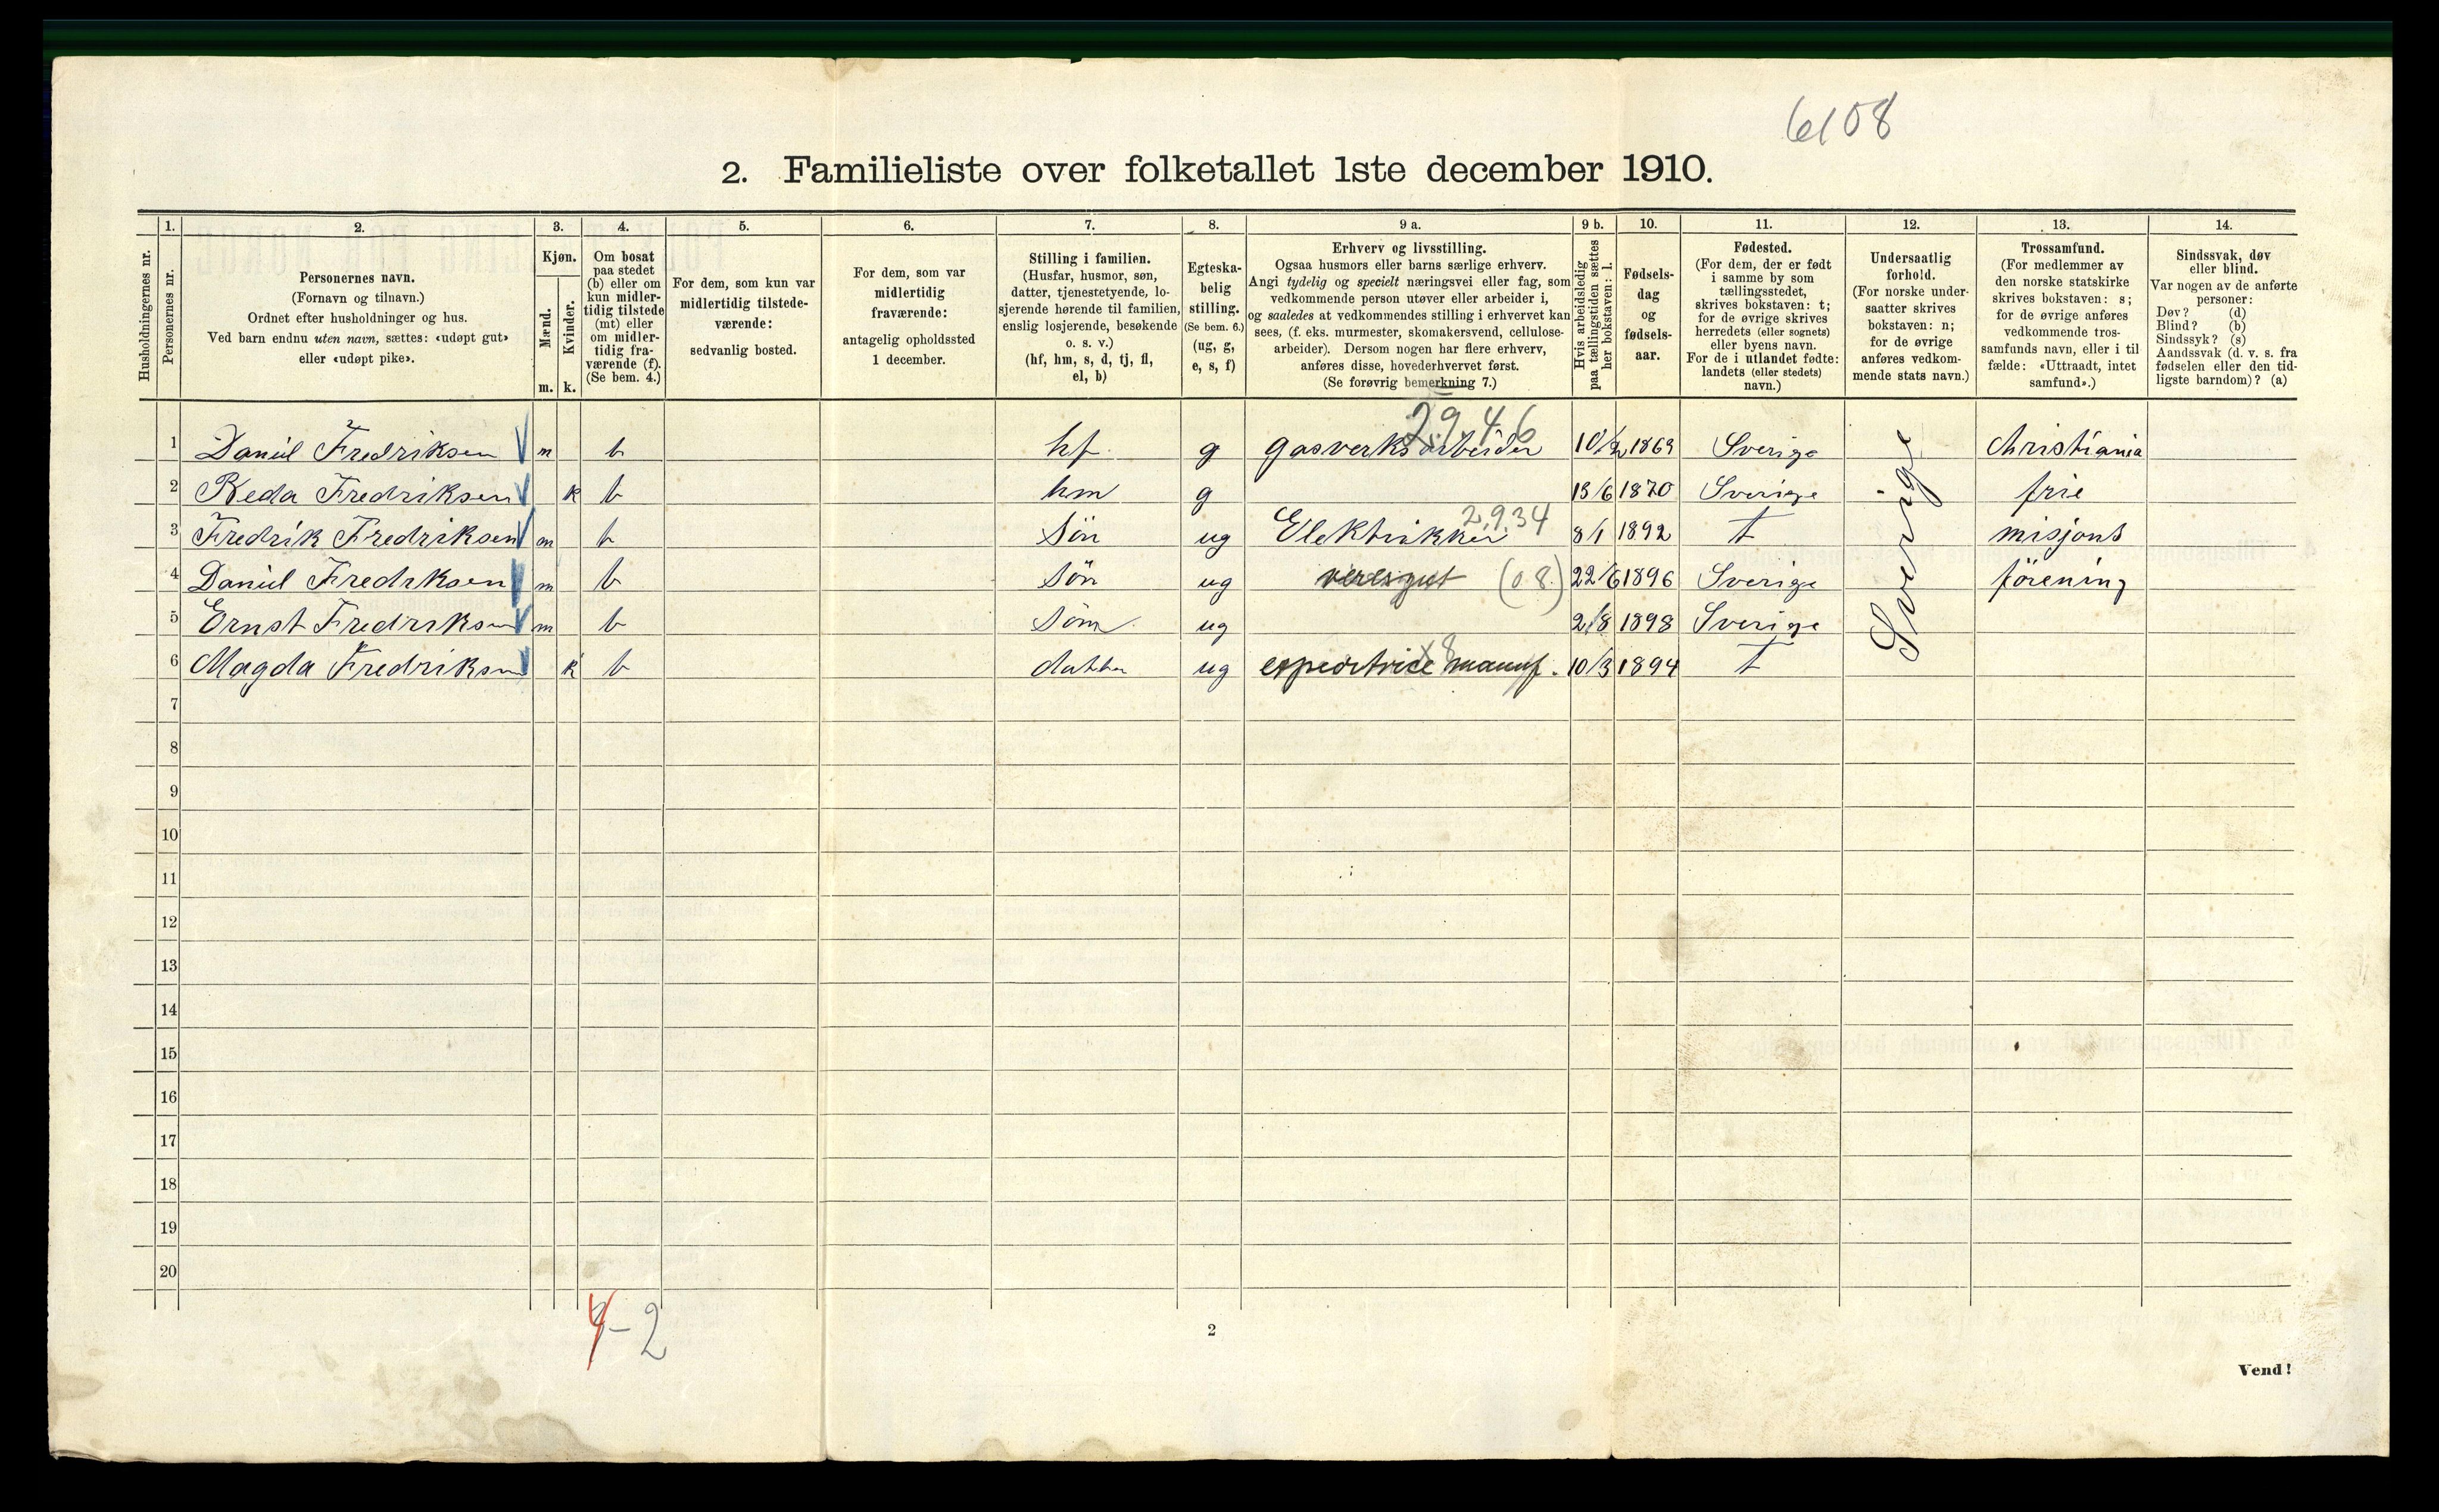 6108
2. Familieliste over folketallet 1ste december 1910.
1. 2. 3. 4. 5. 6. 7. 8. 9 a. 9 b. 10. 11. 12. 13. 14.
Husholdningernes nr.
Personernes nr.
Personernes navn.
(Fornavn og tilnavn.)
Ordnet efter husholdninger og hus.
Ved barn endnu uten navn, sættes: «udøpt gut»
eller «udøpt pike».
Kjøn.
Mænd.
Kvinder.
m. k.
Om bosat
paa stedet
(b) eller om
kun midler-
tidig tilstede
(mt) eller
om midler-
tidig fra-
værende (f).
(Se bem. 4.)
For dem, som kun var
midlertidig tilstede-
værende:
sedvanlig bosted.
For dem, som var
midlertidig
fraværende:
antagelig opholdssted
1 december.
Stilling i familien.
(Husfar, husmor, søn,
datter, tjenestetyende, lo-
sjerende hørende til familien,
enslig losjerende, besøkende
o. s. v.)
(hf, hm, s, d, tj, fl,
el, b)
Egteska-
belig
stilling.
(Se bem. 6.)
(ug, g,
e, s, f)
Erhverv og livsstilling.
Ogsaa husmors eller barns særlige erhverv.
Angi tydelig og specielt næringsvei eller fag, som
vedkommende person utøver eller arbeider i,
og saaledes at vedkommendes stilling i erhvervet kan
sees, (f. eks. murmester, skomakersvend, cellulose-
arbeider). Dersom nogen har flere erhverv,
anføres disse, hovederhvervet først.
(Se forøvrig bemerkning 7.)
Hvis arbeidsledig
paa tællingstiden sættes
her bokstaven: l.
Fødsels-
dag
og
fødsels-
aar.
Fødested.
(For dem, der er født
i samme by som
tællingsstedet,
skrives bokstaven: t;
for de øvrige skrives
herredets (eller sognets)
eller byens navn.
For de i utlandet fødte:
landets (eller stedets)
navn.)
Undersaatlig
forhold.
(For norske under-
saatter skrives
bokstaven: n;
for de øvrige
anføres vedkom-
mende stats navn.)
Trossamfund.
(For medlemmer av
den norske statskirke
skrives bokstaven: s;
for de øvrige anføres
vedkommende tros-
samfunds navn, eller i til
fælde: «Uttraadt, intet
samfund».)
Sindssvak, døv
eller blind.
Var nogen av de anførte
personer:
Døv? (d)
Blind? (b)
Sindssyk? (s)
Aandssvak (d. v. s. fra
fødselen eller den tid-
ligste barndom)? (a)
29.46
1 Daniel Fredriksen m b hf. g gasverksarbeider 10/2 1869 Sverige Christiania
2 Beda Fredriksen k b hm g 13/6 1870 Sverige frie
2.9.34
3 Fredrik Fredriksen m b Sön ug Elektrikker 8/1 1892 t misjons
4 Daniel Fredrksen m b Sön ug (08.) 22/6 1896 Sverige förening
5 Ernst Fredriksen m b Sön ug 2/8 1898 Sverige
X8
6 Magda Fredriksen k b datter ug expeditrice manuf. 10/3 1894 t
Sverige
7
8
9
10
11
12
13
14
15
16
17
18
19
20
4-2
2
Vend!